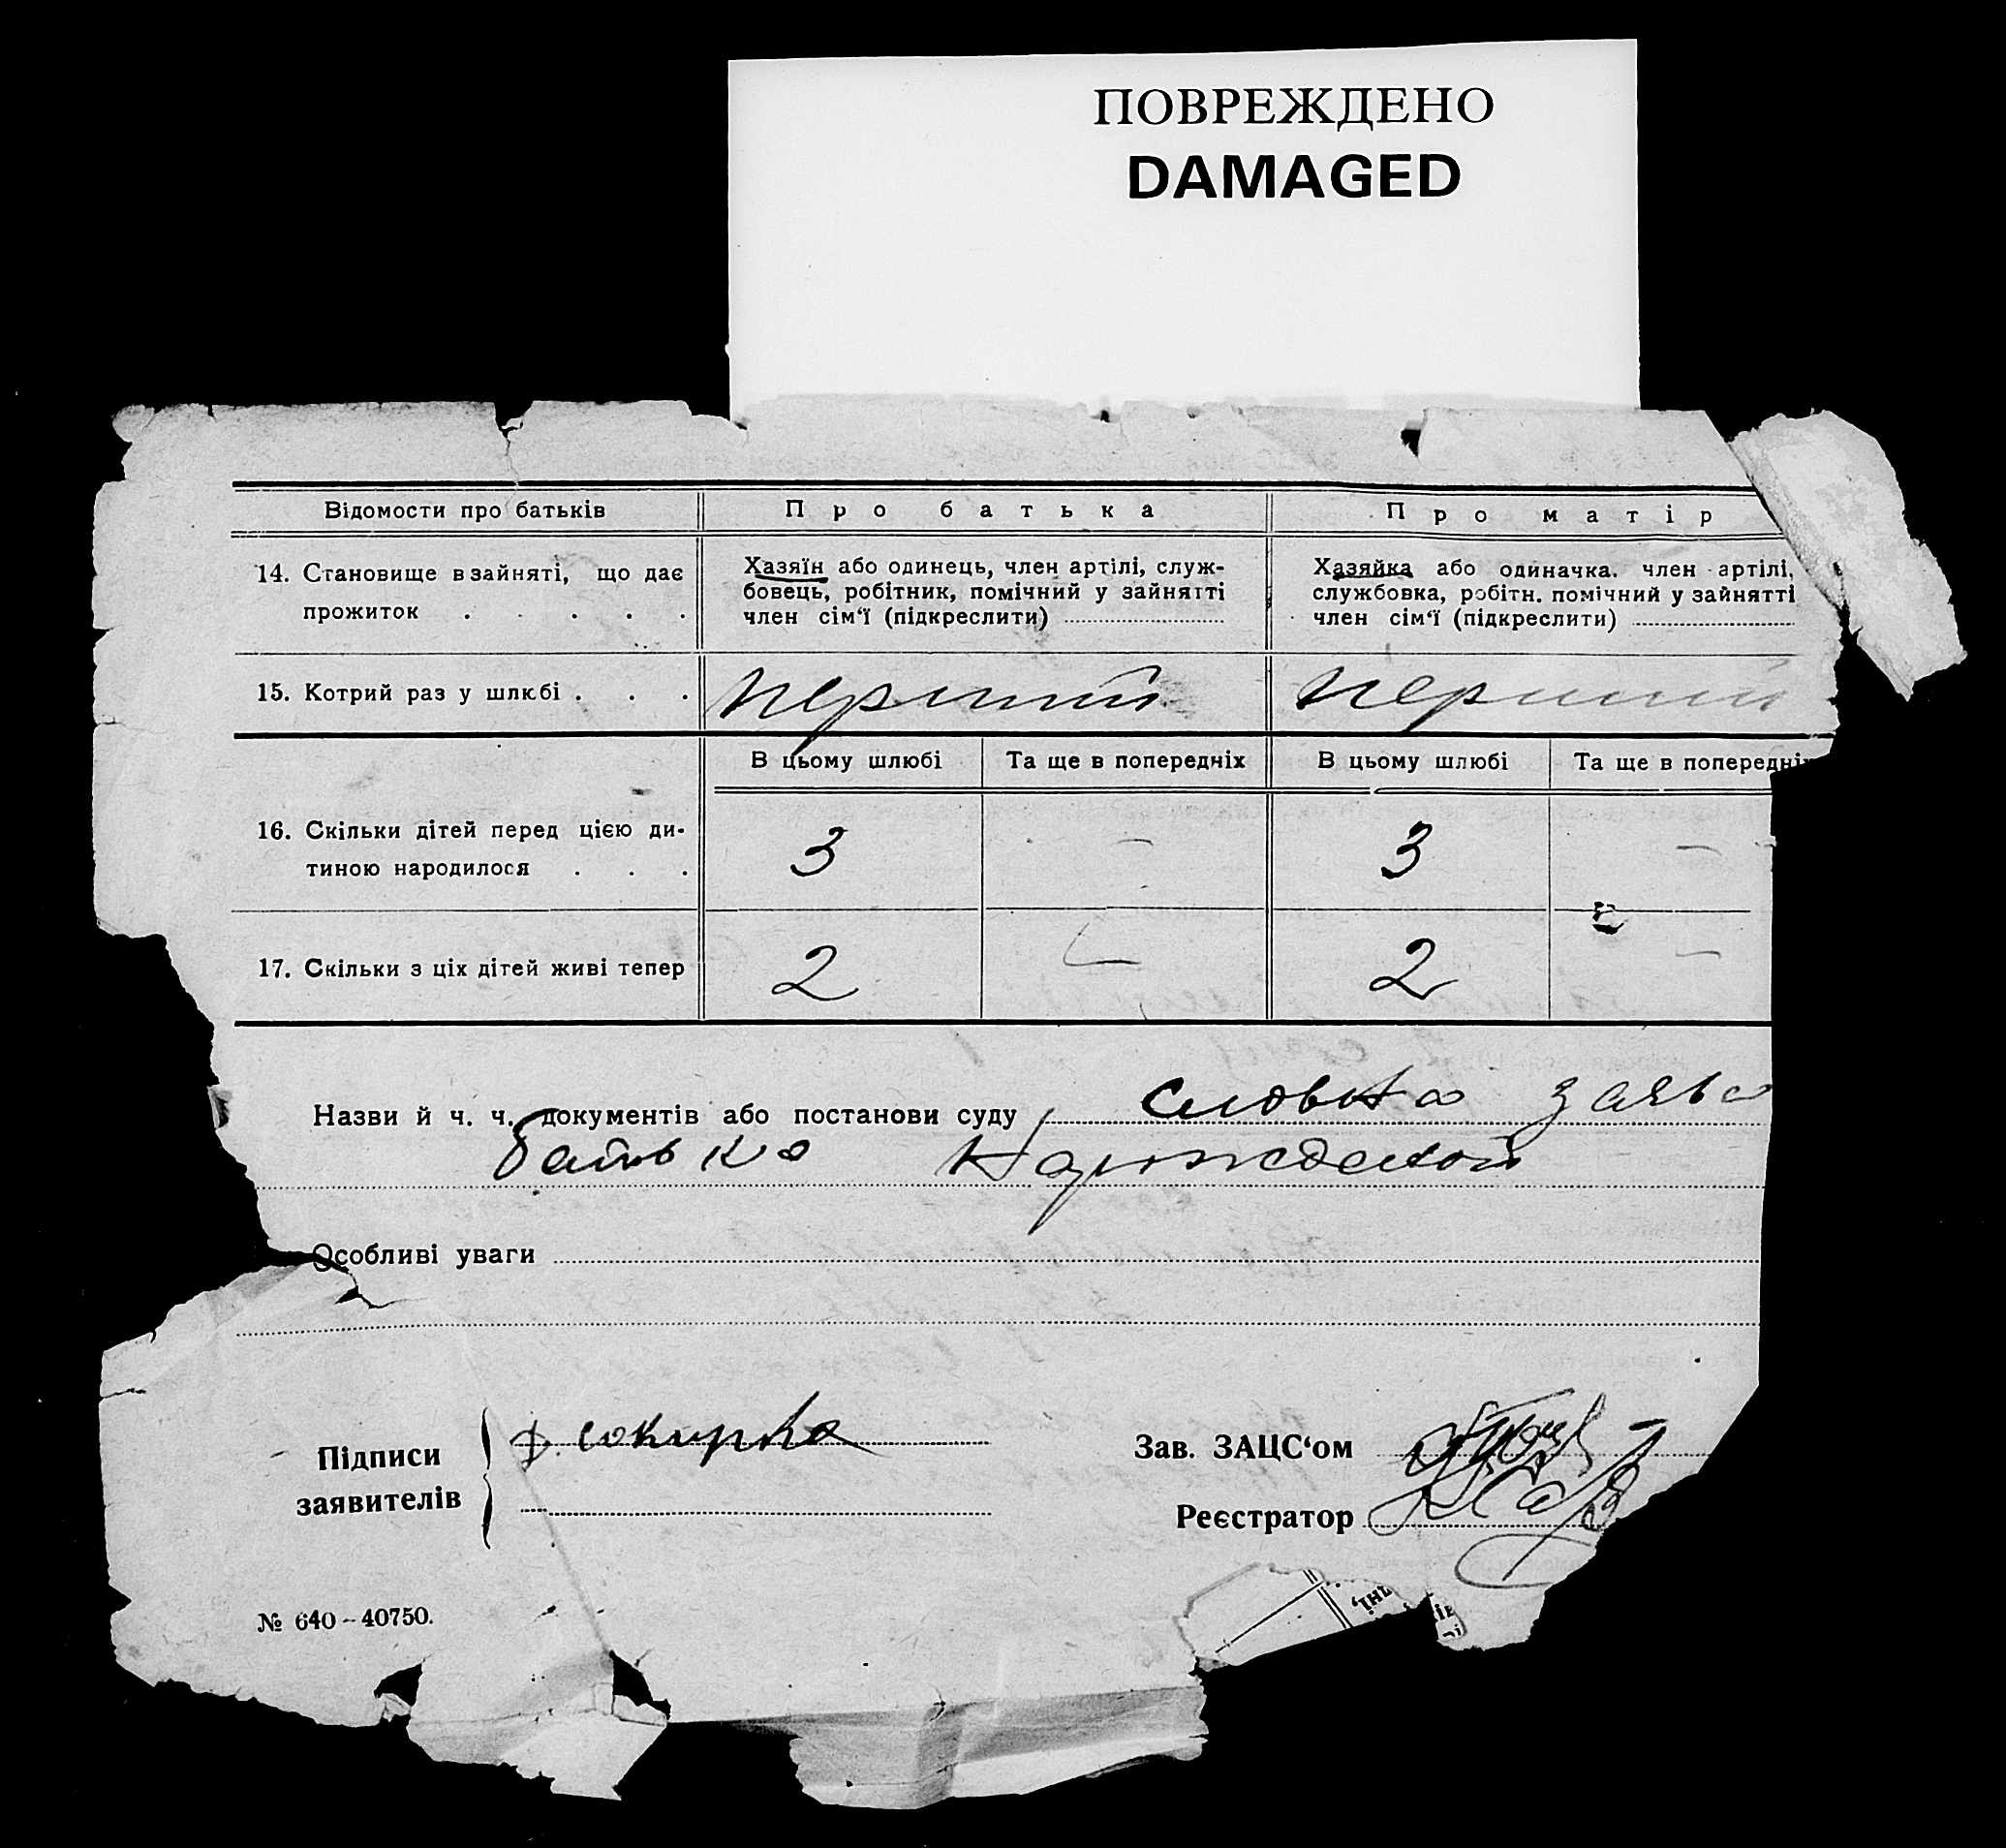 ПОВРЕЖДЕНО
DAMAGED
Відомости про батьків
Про батька
Про матір
14. Становище в зайняті, що дає
прожиток . . . . .
Хазяїн або одинець, член артілі, служ-
бовець, робітник, помічний у зайнятті
член сім‘ї (підкреслити)
Хазяйка або одиначка. член артілі,
службовка, робітн. помічний у зайнятті
член сім‘ї (підкреслити)
15. Котрий раз у шлюбі . . .
перший
перший
В цьому шлюбі
Та ще в попередніх
В цьому шлюбі
Та ще в попередніх
16. Скільки дітей перед цією ди-
тиною народилося . . .
3
–
3
–
17. Скільки з ціх дітей живі тепер
2
–
2
–
Назви й ч. ч. документів або постанови суду словна заява
батька
Особливі уваги
Підписи
заявителів
Ф. Сокирка
Зав. ЗАЦС‘ом
Реєстратор
№ 640–40750.